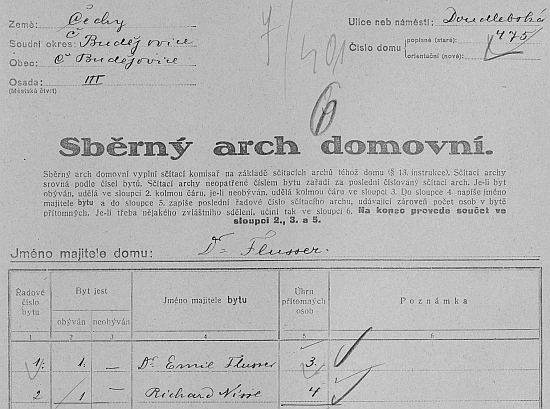 Země: Čechy
Soudní okres: Č Budějovice
Obec: Č Budějovice
Osada: III
(Městská čtvrť)
Ulice neb náměstí: Doudlebská
Číslo domu
popisné (staré): 475
orientační (nové):
Sběrný arch domovní.
Sběrný arch domovní vyplní sčítací komisař na základě sčítacích archů téhož domu (§ 13. instrukce). Sčítací archy
srovná podle čísel bytů. Sčítací archy neopatřené číslem bytu zařadí za poslední číslovaný sčítací arch. Je-li byt
obýván, udělá ve sloupci 2. kolmou čáru, je-li neobýván, udělá kolmou čáru ve sloupci 3. Do sloupce 4 napíše jméno
majitele bytu a do sloupce 5. zapíše poslední řadové číslo sčítacího archu, udávající zároveň počet osob v bytě
přítomných. Je-li třeba nějakého zvláštního sdělení, učiní tak ve sloupci 6. Na konec provede součet ve
sloupci 2., 3. a 5.
Jméno majitele domu: Dr Flusser.
Řadové číslo bytu
Byt jest
obýván
neobýván
Jméno majitele bytu
Úhrn přítomných osob
Poznámka
1 2 3 4 5 6
1. 1. — Dr. Emil Flusser 3.
2 1 — Richard 4